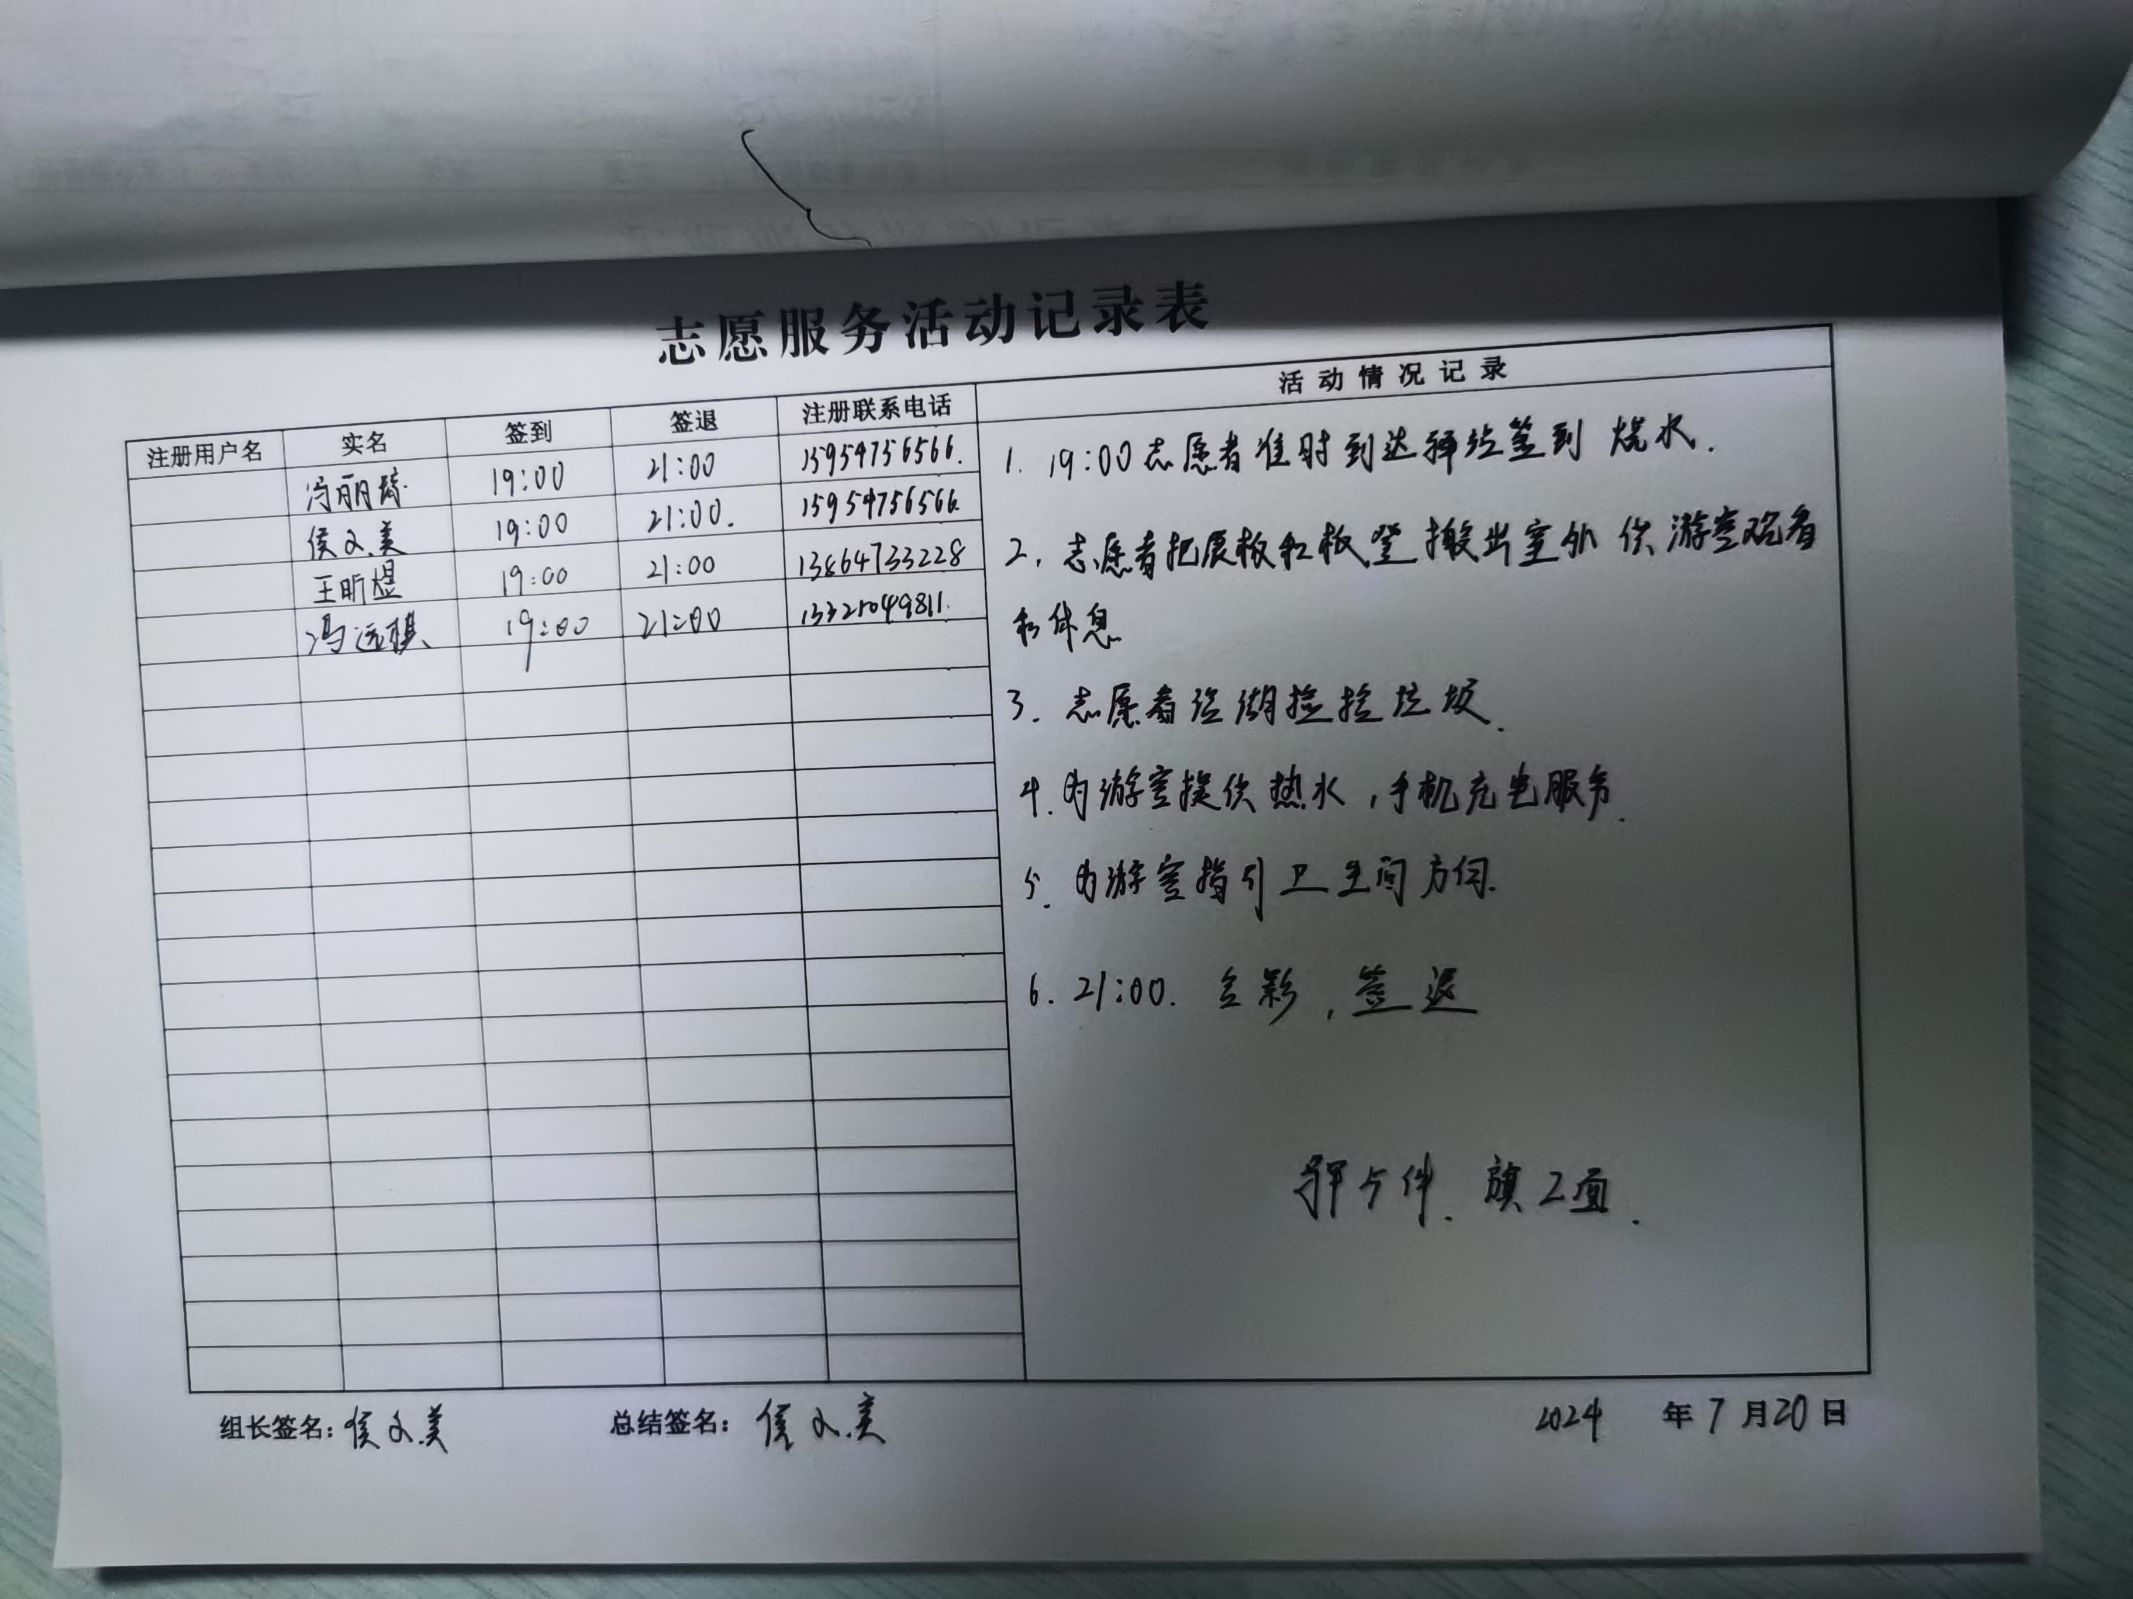 志愿服务活动记录表
注册用户名 实名 签到 签退 注册联系电话 活动情况记录
冯丽 19:00 21:00 15954756566.
侯文美 19:00 21:00. 15954756566.
王昕煜 19:00 21:00 13864733228
冯远祺 19:00 21:00 13321049811.
1. 19:00志愿者准时到达驿站签到 烧水.
2. 志愿者把展板和板凳搬出室外 供游客观看
和休息
3. 志愿者沿湖捡捡垃圾.
4. 为游客提供热水,手机充电服务.
5. 为游客指引卫生间方向.
6. 21:00. 合影,签退
5件. 旗2面.
组长签名:侯文美 总结签名:侯文美 2024 年7月20日